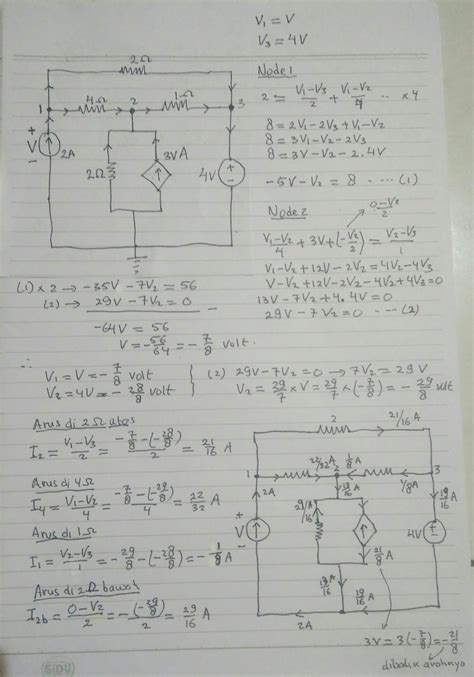 V₁ = V
V₃ = 4V
Node 1
2 = (V₁-V₃)/2 + (V₁-V₂)/4 ... × 4
8 = 2V₁-2V₃+V₁-V₂
8 = 3V₁-V₂-2V₃
8 = 3V-V₂-2.4V
-5V-V₂ = 8 .... (1)
Node 2
(0-V₂)/2
(V₁-V₂)/4 + 3V + (-V₂/2) = (V₂-V₃)/1
V₁-V₂+12V-2V₂=4V₂-4V₃
V-V₂+12V-2V₂-4V₂+4V₃=0
13V-7V₂+4.4V=0
29V-7V₂=0 ... (2)
2Ω
1 4Ω 2 1Ω 3
+ V - 2A 2Ω 3V A 4V + -
(1) × 7 → -35V-7V₂=56
(2) → 29V-7V₂=0
-64V = 56
V = -56/64 = -7/8 volt.
∴
V₁=V=-7/8 volt
V₃=4V=-28/8 volt
(2) 29V-7V₂=0 → 7V₂=29V
V₂=29/7 × V = 29/7 × (-7/8) = -29/8 volt
Arus di 2Ω atas
I₂ = (V₁-V₃)/2 = (-7/8-(-28/8))/2 = 21/16 A
Arus di 4Ω
I₄ = (V₁-V₂)/4 = (-7/8-(-29/8))/4 = 22/32 A
Arus di 1Ω
I₁ = (V₂-V₃)/1 = -29/8-(-28/8) = -1/8 A
Arus di 2Ω bawah
I₂b = (0-V₂)/2 = -(-29/8)/2 = 29/16 A
2 21/16 A
1 22/32 A 2 1/8 A 3
2A 13/16 A 1/8 A 19/16 A
V 29/16 A 21/8 A 4V + -
13/16 A 19/16 A
2A
3V = 3(-7/8) = -21/8
dibalik arahnya
SIDU